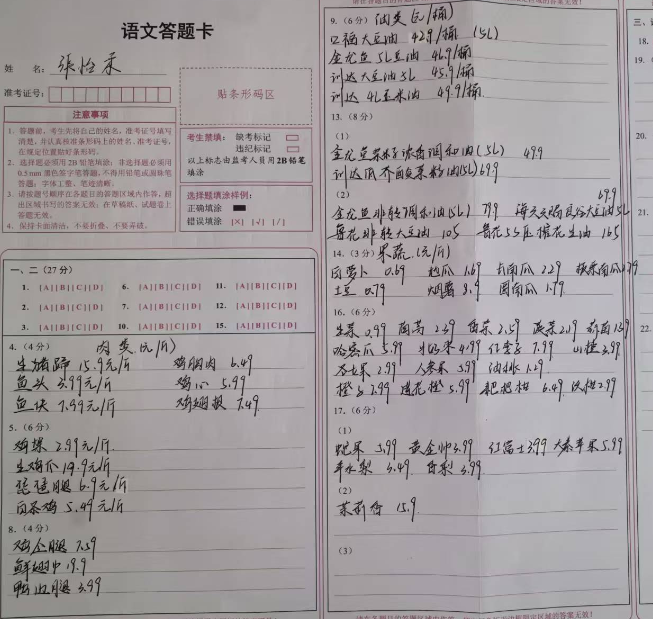 语文答题卡
姓 名：張怡
准考证号：
贴条形码区
注意事项
1. 答题前，考生先将自己的姓名、准考证号填写
清楚，并认真核准条形码上的姓名、准考证号，
在规定位置贴好条形码。
2. 选择题必须用2B铅笔填涂；非选择题必须用
0.5 mm黑色签字笔答题，不得用铅笔或圆珠笔
答题；字体工整、笔迹清晰。
3. 请按题号顺序在各题目的答题区域内作答，超
出区域书写的答案无效；在草稿纸、试题卷上
答题无效。
4. 保持卡面清洁，不要折叠、不要弄破。
考生禁填： 缺考标记
违纪标记
以上标志由监考人员用2B铅笔
填涂
选择题填涂样例：
正确填涂
错误填涂 [×] [√] [/]
一、二（27分）
1. [A] [B] [C] [D] 6. [A] [B] [C] [D] 11. [A] [B] [C] [D]
2. [A] [B] [C] [D] 7. [A] [B] [C] [D] 12. [A] [B] [C] [D]
3. [A] [B] [C] [D] 10. [A] [B] [C] [D] 15. [A] [B] [C] [D]
4.（4分） 肉类(元/斤)
生猪蹄 15.9元/斤 鸡胸肉 6.49
鱼头 3.99元/斤 鸡心 5.99
鱼块 7.99元/斤 鸡翅根 7.49
5.（6分）
鸡 2.99元/斤
生鸡爪 19.9元/斤
琵琶腿 6.9元/斤
白条鸡 5.49元/斤
8.（4分）
鸡全腿 7.59
鲜翅中 19.9
鸭边腿 3.99
9.（6分） 油类(元/桶)
口福大豆油 42.9/桶 (5L)
金龙鱼5L豆油 46.9/桶
训达大豆油5L 45.9/桶
训达4L玉米油 49.9/桶
13.（8分）
（1）
金龙鱼菜籽浓香调和油(5L) 49.9
训达原香菜籽油(5L) 69.9
（2） 69.9
金龙鱼非转调和油(5L) 79.9 海天大豆油5L
鲁花非转大豆油 105 鲁花5S压榨花生油 165
14.（3分）果蔬(元/斤)
白萝卜 0.69 1.69 南瓜 2.29
土豆 0.79 8.9 圆南瓜 1.79
16.（6分）
生菜 0.99 茼蒿 2.39 香菜 2.59
哈密瓜 5.99 4.99 7.99 3.99
2.99 人参果 3.99 油桃 1.29
橙 3.99 5.99 耙耙柑 6.49 2.99
17.（6分）
（1）
蛇果 5.99 黄金帅 3.99 红富士 3.99 大秦苹果 5.99
丰水梨 3.49 香梨 3.99
（2）
茉莉香 15.9
（3）
三、
18.
19.
21.
22.